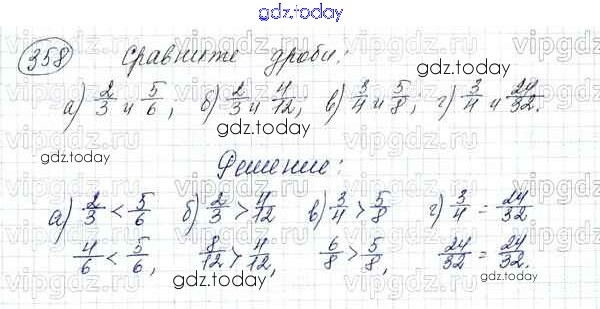 gdz.today
358 Сравните дроби:
а) 2/3 и 5/6, б) 2/3 и 4/12, в) 3/4 и 5/8, г) 3/4 и 24/32.
gdz.today
gdz.today
gdz.today
Решение:
а) 2/3 < 5/6 б) 2/3 > 4/12 в) 3/4 > 5/8 г) 3/4 = 24/32
4/6 < 5/6, 8/12 > 4/12, 6/8 > 5/8, 24/32 = 24/32.
gdz.today
gdz.today